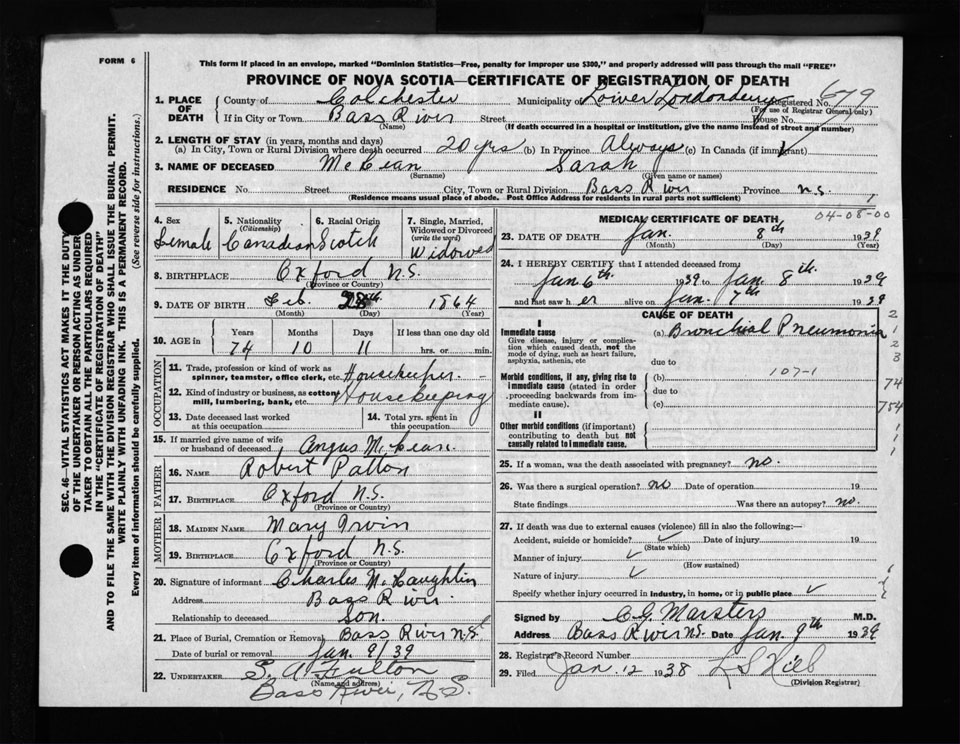 FORM 6
This form if placed in an envelope, marked "Dominion Statistics—Free, penalty for improper use $300," and properly addressed will pass through the mail "FREE"
PROVINCE OF NOVA SCOTIA—CERTIFICATE OF REGISTRATION OF DEATH
1. PLACE OF DEATH County of Colchester Municipality of Lower Londonderry Registered No. 679
(For use of Registrar General only)
If in City or Town Bass River Street House No.
(Name) (If death occurred in a hospital or institution, give the name instead of street and number)
2. LENGTH OF STAY (in years, months and days)
(a) In City, Town or Rural Division where death occurred 20 yrs (b) In Province Always (c) In Canada (if immigrant)
3. NAME OF DECEASED McLean Sarah
(Surname) (Given name or names)
RESIDENCE No. Street City, Town or Rural Division Bass River Province N.S.
(Residence means usual place of abode. Post Office Address for residents in rural parts not sufficient)
4. Sex 5. Nationality (Citizenship) 6. Racial Origin 7. Single, Married, Widowed or Divorced (write the word)
Female Canadian Scotch Widowed
8. BIRTHPLACE Oxford N.S.
(Province or Country)
9. DATE OF BIRTH Feb. 28th 1864
(Month) (Day) (Year)
10. AGE in Years Months Days If less than one day old
74 10 11 hrs. or min.
OCCUPATION
11. Trade, profession or kind of work as spinner, teamster, office clerk, etc. Housekeeper
12. Kind of industry or business, as cotton mill, lumbering, bank, etc. Housekeeping
13. Date deceased last worked at this occupation
14. Total yrs. spent in this occupation
15. If married give name of wife or husband of deceased Angus McLean
FATHER
16. NAME Robert Patton
17. BIRTHPLACE Oxford N.S.
(Province or Country)
MOTHER
18. MAIDEN NAME Mary Irwin
19. BIRTHPLACE Oxford N.S.
(Province or Country)
20. Signature of informant Charles McLaughlin
Address Bass River
Relationship to deceased Son.
21. Place of Burial, Cremation or Removal Bass River N.S.
Date of burial or removal Jan. 9/39
22. UNDERTAKER S. A. Fulton
(Name and address)
Bass River, N.S.
MEDICAL CERTIFICATE OF DEATH
04-08-00
23. DATE OF DEATH Jan. 8th 1939
(Month) (Day) (Year)
24. I HEREBY CERTIFY that I attended deceased from
Jan 6th 1939 to Jan. 8th 1939
and last saw h er alive on Jan. 7th 1939
CAUSE OF DEATH
I
Immediate cause (a) Bronchial Pneumonia
Give disease, injury or complication which caused death, not the mode of dying, such as heart failure, asphyxia, asthenia, etc
due to
107-1
Morbid conditions, if any, giving rise to immediate cause (stated in order proceeding backwards from immediate cause). (b)
due to
(c)
II
Other morbid conditions (if important) contributing to death but not causally related to immediate cause.
2
1
2
3
74
754
25. If a woman, was the death associated with pregnancy? no.
26. Was there a surgical operation? no Date of operation 19
State findings Was there an autopsy? no.
27. If death was due to external causes (violence) fill in also the following:—
Accident, suicide or homicide? ✓ Date of injury 19
(State which)
Manner of injury ✓
(How sustained)
Nature of injury ✓
Specify whether injury occurred in industry, in home, or in public place ✓
Signed by C.G. Marsters M.D.
Address Bass River N.S. Date Jan. 9th 1939
28. Registrar's Record Number
29. Filed Jan 12 1938
(Division Registrar)
SEC. 46—VITAL STATISTICS ACT MAKES IT THE DUTY
OF THE UNDERTAKER OR PERSON ACTING AS UNDERTAKER TO OBTAIN ALL THE PARTICULARS REQUIRED
IN THE "CERTIFICATE OF REGISTRATION OF DEATH"
AND TO FILE THE SAME WITH THE DIVISION REGISTRAR WHO SHALL ISSUE THE BURIAL PERMIT.
WRITE PLAINLY WITH UNFADING INK. THIS IS A PERMANENT RECORD.
Every item of information should be carefully supplied. (See reverse side for instructions.)